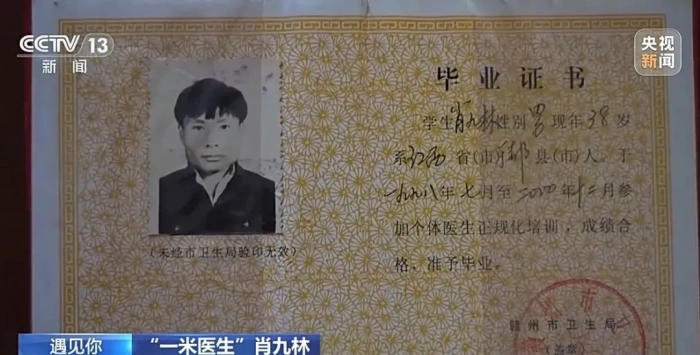 CCTV 13
新闻
央视
新闻
毕业证书
学生肖九林性别男现年38岁
系江西省(市)于都县(市)人。于
一九九八年七月至二〇〇四年十二月参
加个体医生正规化培训，成绩合
格，准予毕业。
(未经市卫生局验印无效)
赣州市卫生局
(盖章)
遇见你
“一米医生”肖九林